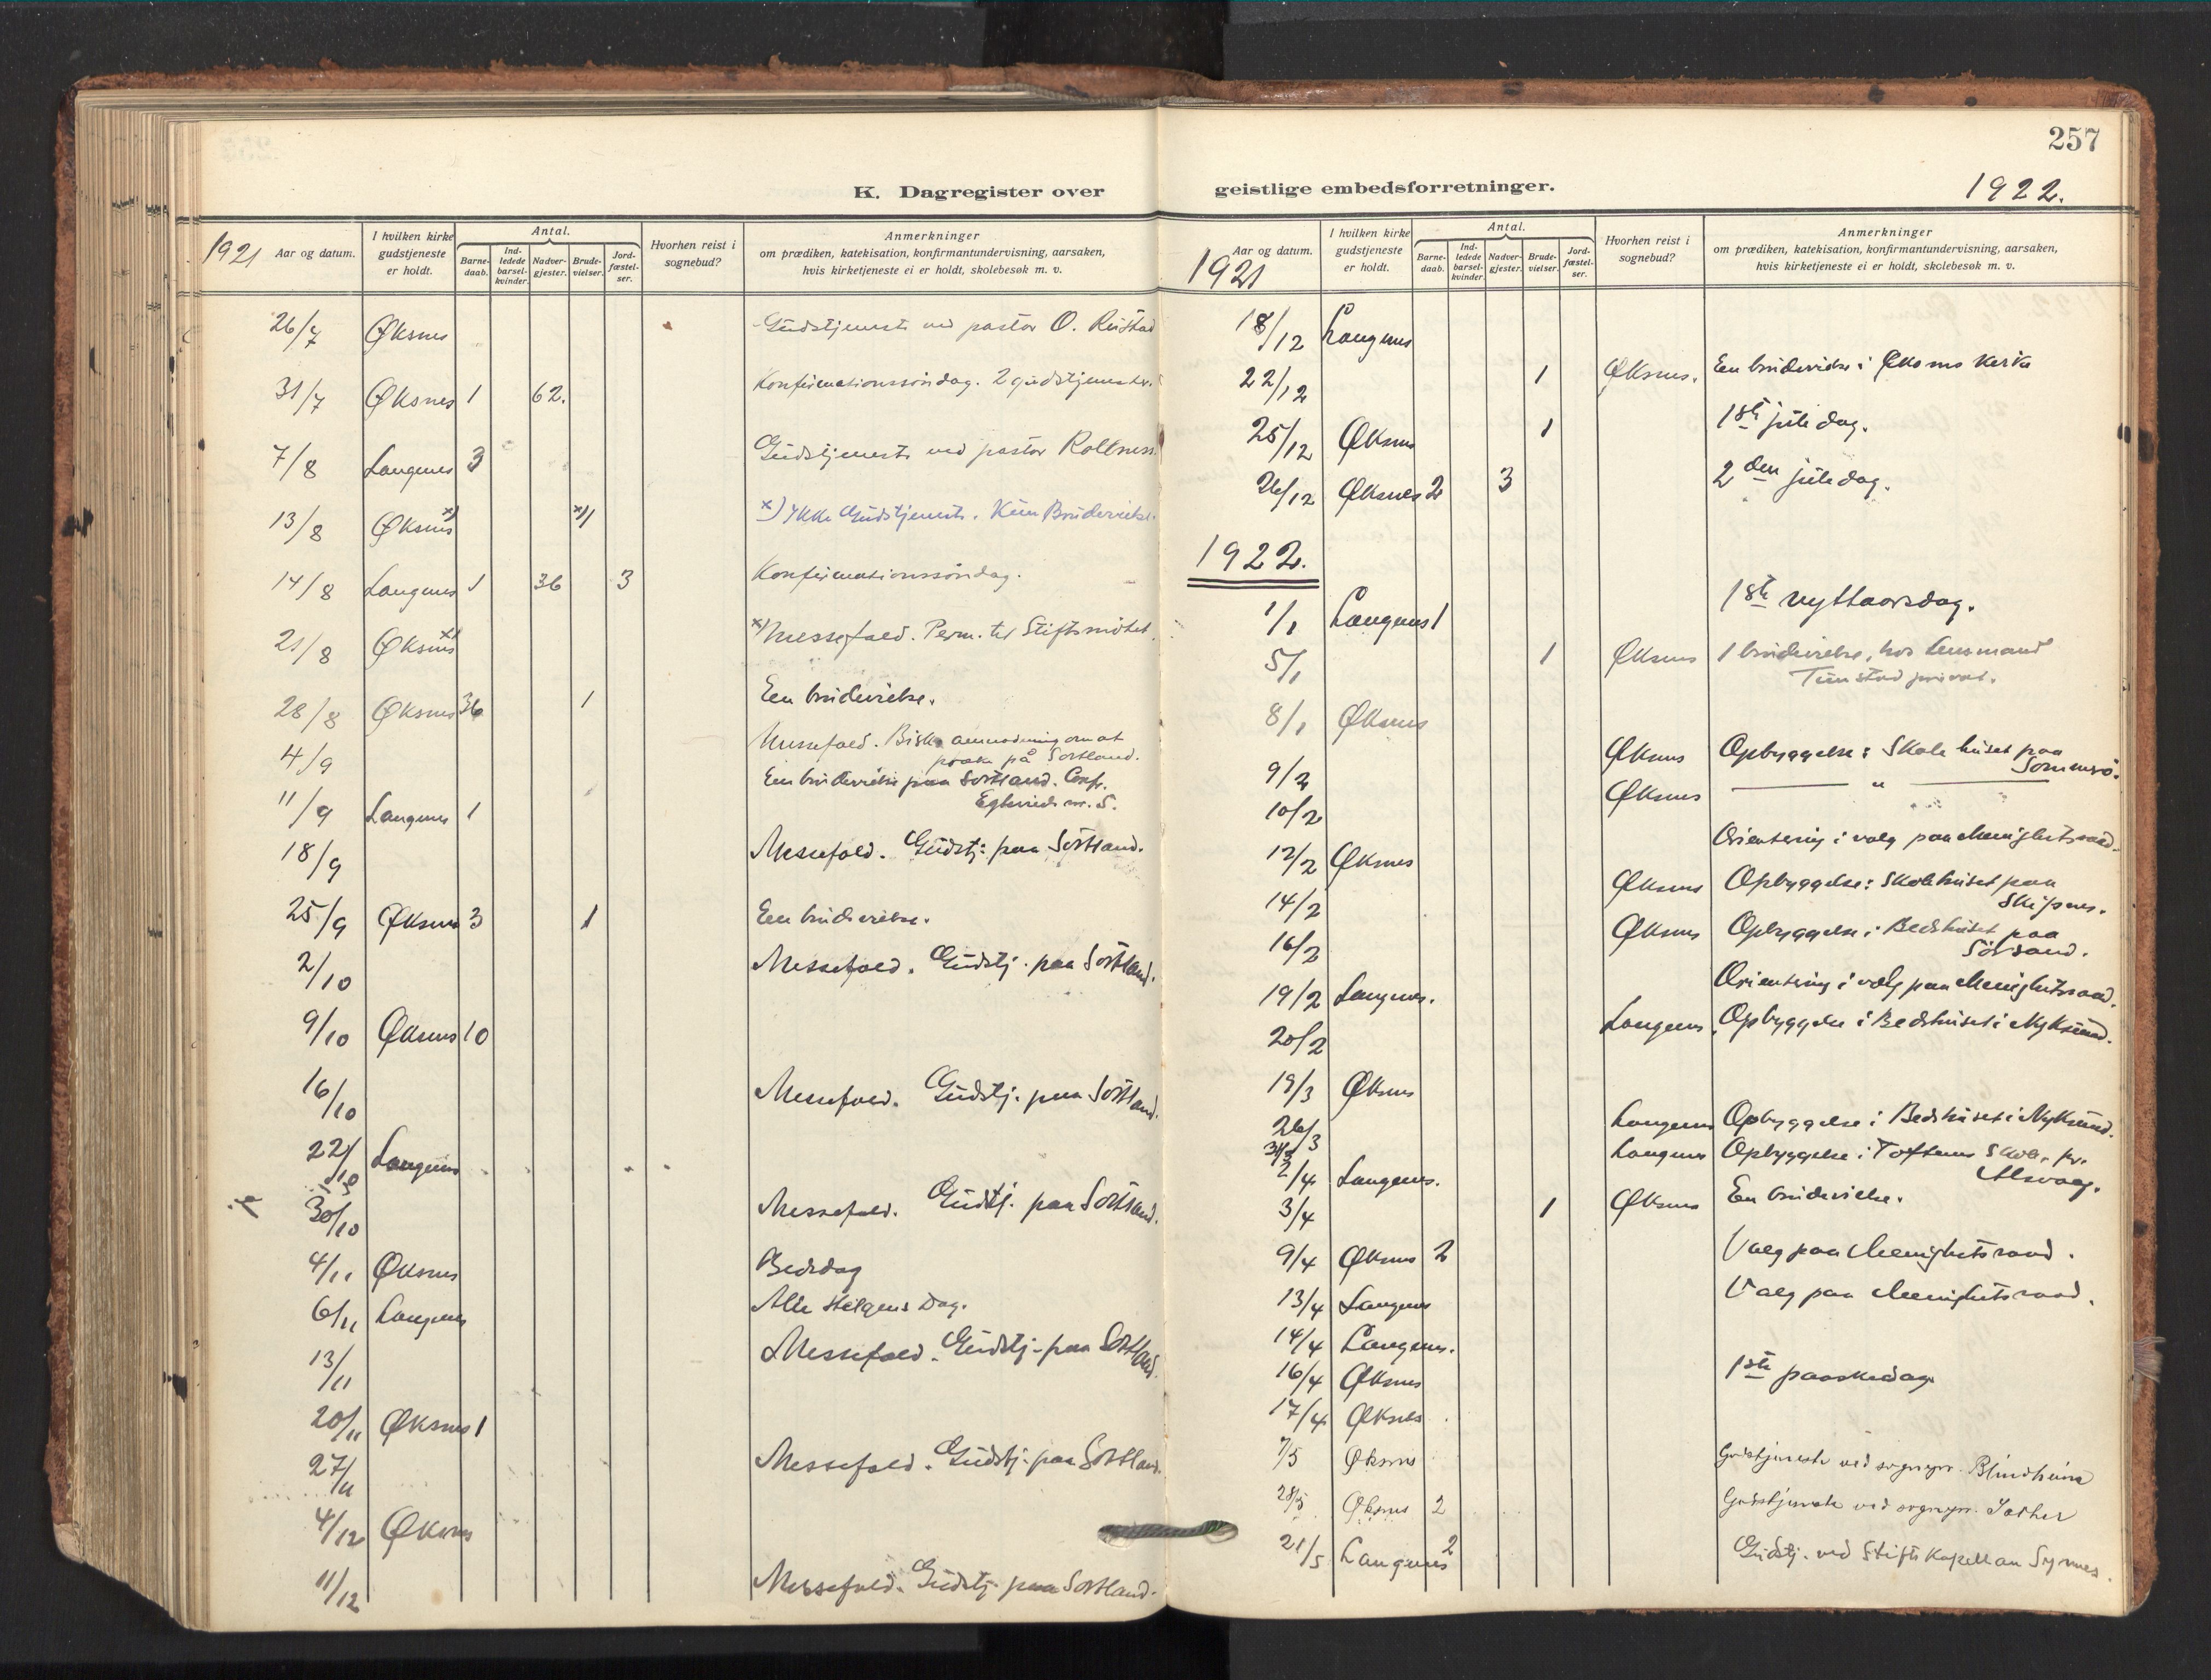 257
K. Dagregister over geistlige embedsforretninger.
1922.
1921 Aar og datum.
I hvilken kirke gudstjeneste er holdt.
Antal.
Barne-daab.
Ind-ledede barsel-kvinder.
Nadver-gjester.
Brude-vielser.
Jord-fæstel-ser.
Hvorhen reist i sognebud?
Anmerkninger
om prædiken, katekisation, konfirmantundervisning, aarsaken,
hvis kirketjeneste ei er holdt, skolebesøk m. v.
26/7 Øksnes Gudstjeneste ved pastor O. Reistad
31/7 Øksnes 1 62. Konfirmationssøndag. 2 gudstjenester.
7/8 Langenes 3 Gudstjeneste ved pastor
13/8 Øksnes x) x)1 x) Ikke Gudstjeneste. Kun Brudevielse.
14/8 Langenes 1 36 3 Konfirmationssøndag.
21/8 Øksnes x) x) Messefald. Perm. til Stiftsmøtet.
28/8 Øksnes 36 1 En brudevielse.
4/9 Messefald. Bisk. anmodning om at
præke på Sortland.
En brudevielse paa Sortland. Conf.
nr. 5.
11/9 Langenes 1
18/9 Messefald. Gudstj: paa Sortland.
25/9 Øksnes 3 1 En brudevielse.
2/10 Messefald. Gudstj. paa Sortland.
9/10 Øksnes 10
16/10 Messefald. Gudstj. paa Sortland.
22/10 Langenes
30/10 Messefald. Gudstj. paa Sortland.
4/11 Øksnes Bededag
6/11 Langenes Alle Helgens Dag.
13/11 Messefald. Gudstj. paa Sortland.
20/11 Øksnes 1
27/11 Messefald. Gudstj. paa Sortland.
4/12 Øksnes
11/12 Messefald. Gudstj. paa Sortland.
Aar og datum.
1921
I hvilken kirke gudstjeneste er holdt.
Antal.
Barne-daab.
Ind-ledede barsel-kvinder.
Nadver-gjester.
Brude-vielser.
Jord-fæstel-ser.
Hvorhen reist i sognebud?
Anmerkninger
om prædiken, katekisation, konfirmantundervisning, aarsaken,
hvis kirketjeneste ei er holdt, skolebesøk m. v.
18/12 Langenes
22/12 1 Øksnes. En brudevielse i Øksnes Kirke
25/12 Øksnes 1 1ste juledag.
26/12 Øksnes 2 3 2den juledag.
1922.
1/1 Langenes 1 1ste nyttaarsdag.
5/1 1 Øksnes 1 brudevielse, hos Lensmand
Tunstad privat.
8/1 Øksnes
9/2 Øksnes Opbyggelse i Skolehuset paa
Sommerø.
10/2 Øksnes — " —
12/2 Øksnes Orientering i valg paa Menighetsraad.
14/2 Øksnes Opbyggelse i Skolehuset paa
Skipnes.
16/2 Øksnes Opbyggelse i Bedehuset paa
Sørsand.
19/2 Langenes. Orientering i valg paa Menighetsraad.
20/2 Langenes. Opbyggelse i Bedehuset i Nyksund.
19/3 Øksnes
26/3 Langenes Opbyggelse i Bedehuset i Nyksund.
31/3 Langenes Opbyggelse i Toftenes Skole, pr.
Alsvaag.
2/4 Langenes.
3/4 1 Øksnes En brudevielse.
9/4 Øksnes 2 Valg paa Menighetsraad.
13/4 Langenes Valg paa Menighetsraad.
14/4 Langenes.
16/4 Øksnes 1ste paaskedag
17/4 Øksnes
7/5 Øksnes Gudstjeneste ved sognepr. Blindheim
28/5 Øksnes 2 Gudstjeneste ved sognepr.
21/5 Langenes 2 Gudstj. ved Stiftskapellan Synnes.